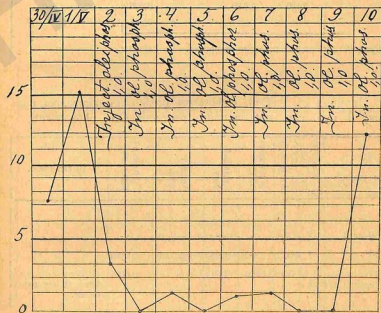 30/IV 1/V 2 3 4 5 6 7 8 9 10
Inject. olei phosph. 1,0
In. ol. phosph. 1,0
In. ol. phosph. 1,0
In. ol. phosph. 1,0
In. ol. phosphor. 1,0
In. ol. phos. 1,0
In. ol. phos. 1,0
In. ol. phos. 1,0
In. ol. phos. 1,0
15
10
5
0